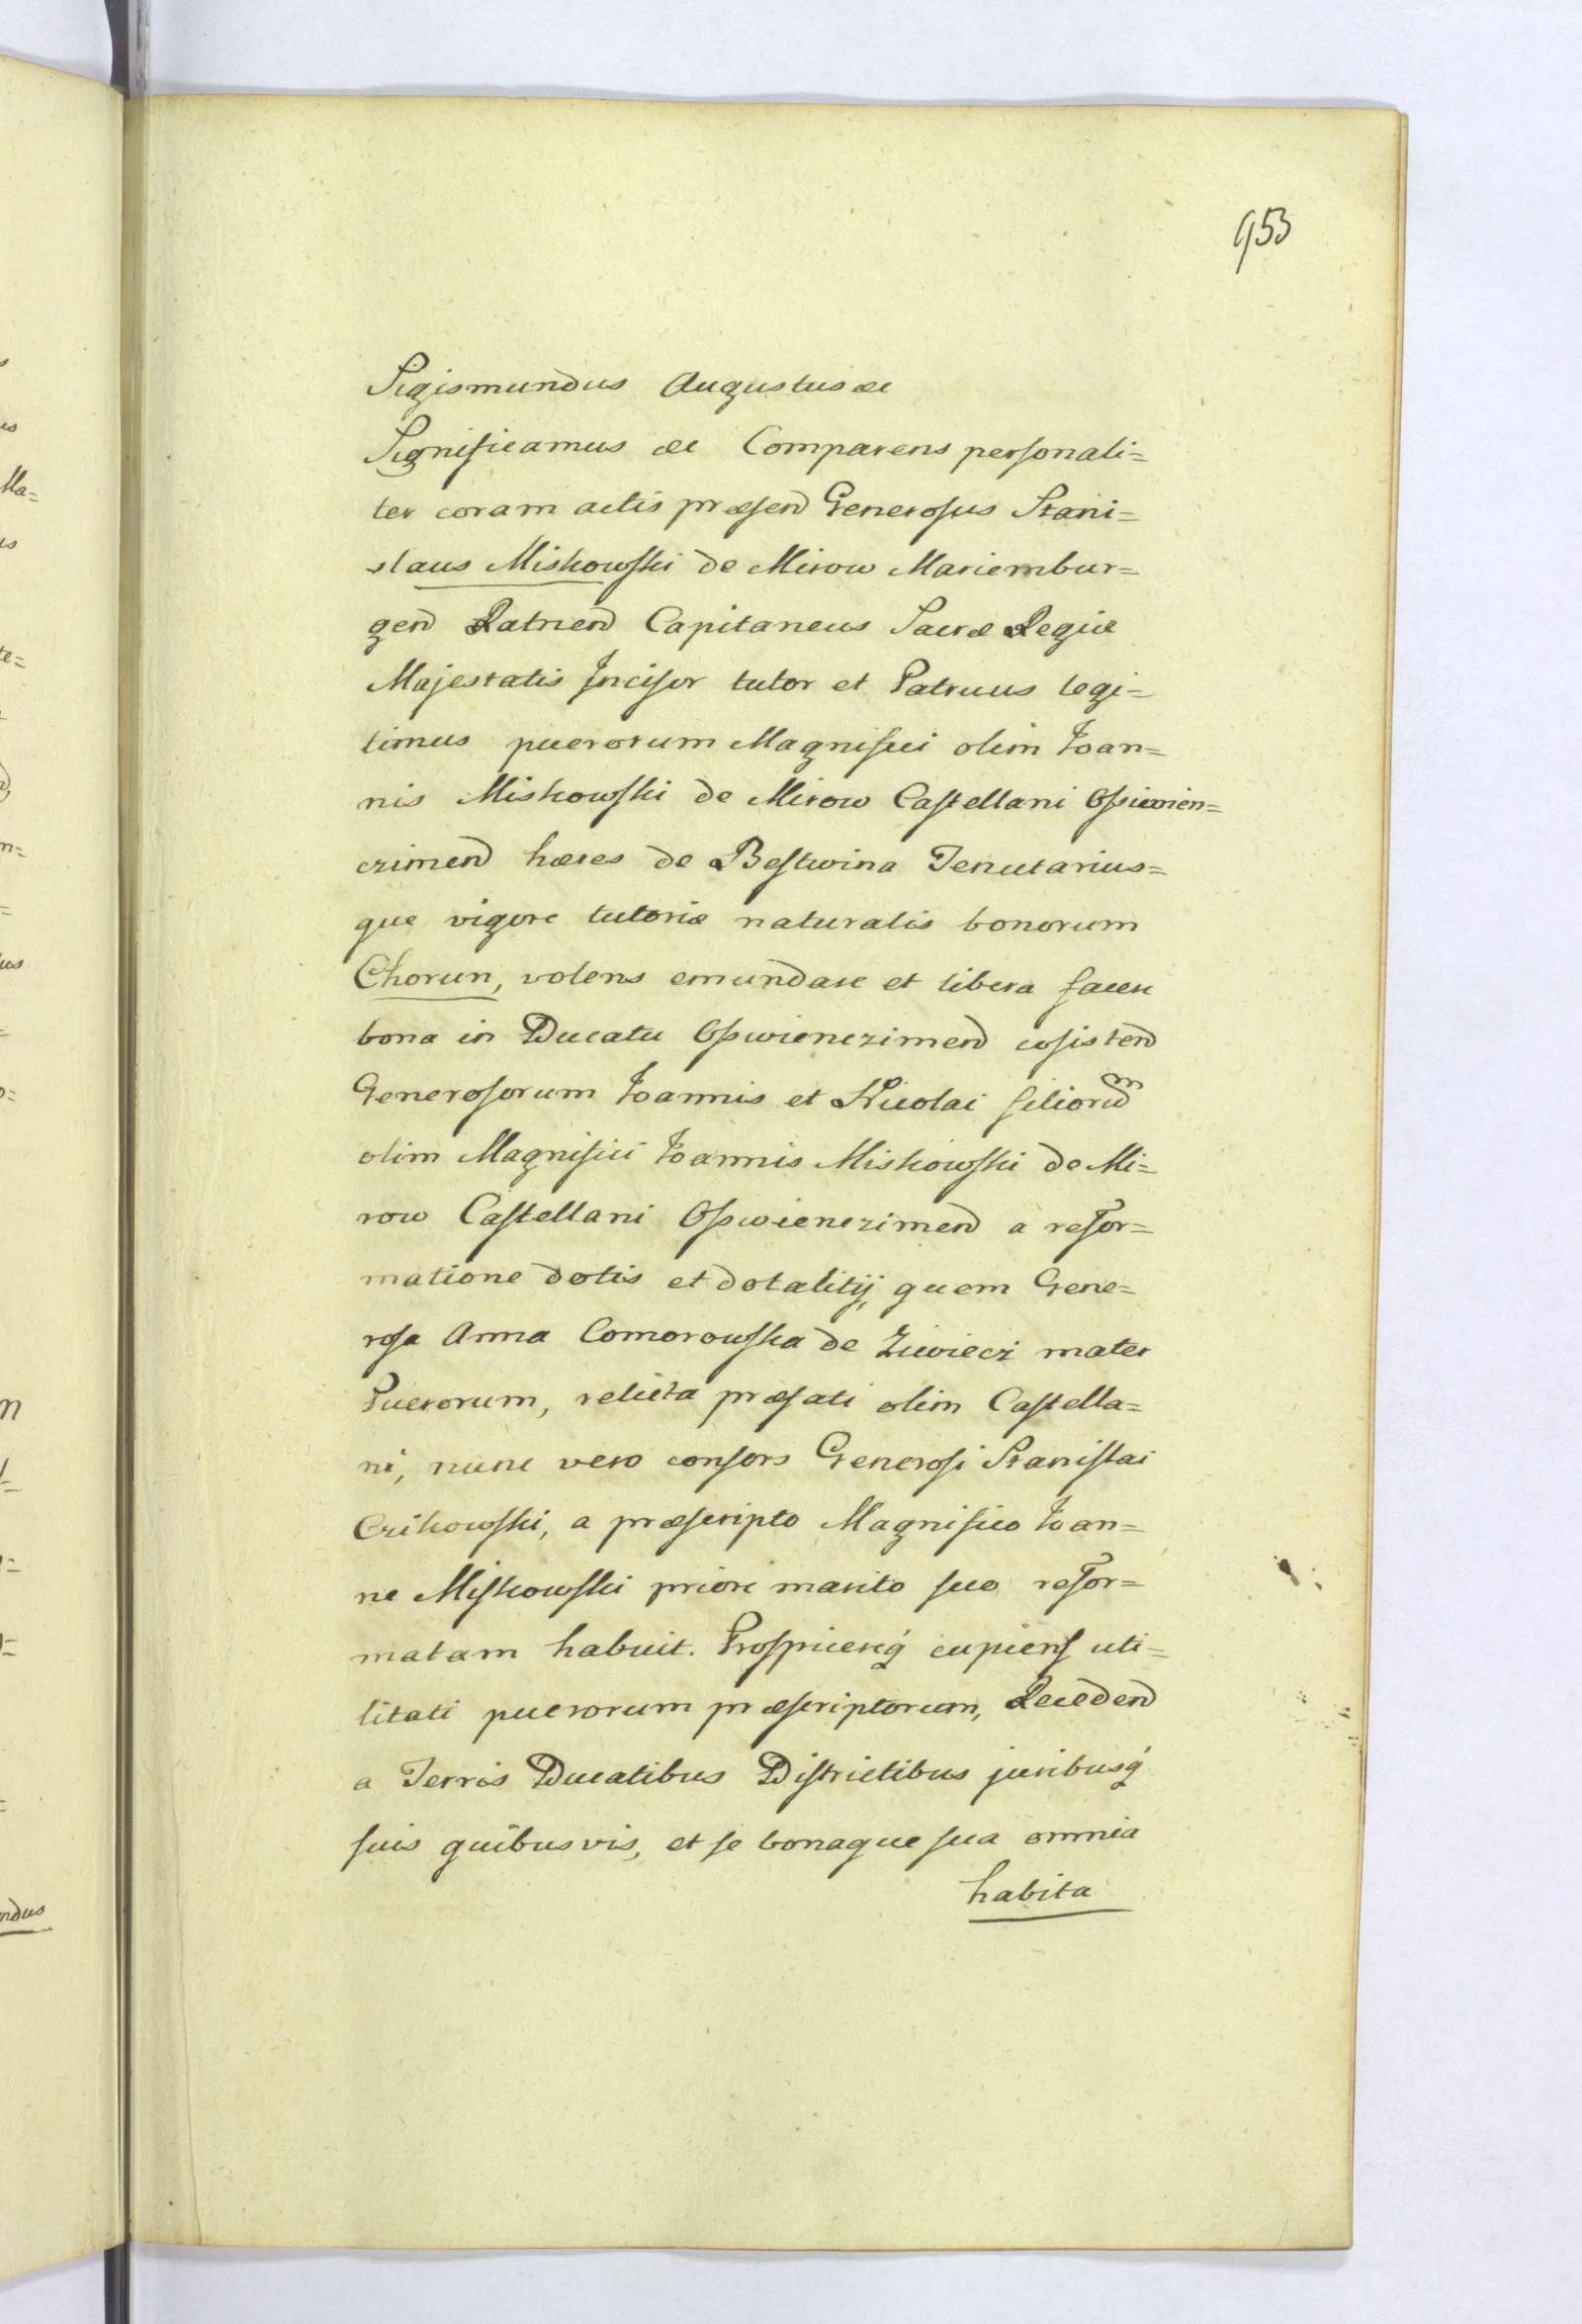 953
Sigismundus Augustus &c
Significamus &c Comparens personali=
ter coram actis præsend Generosus Stani=
slaus Miskowski de Mirow Mariembur=
gend Ratnend Capitaneus Sacræ Regiæ
Majestatis Incisor tutor et Patruus legi=
timus puerorum Magnifici olim Ioan=
nis Miskowski de Mirow Castellani Oswien=
czimend hæres de Bestwina Tenutarius=
que vigore tutoriæ naturalis bonorum
Chorun, volens emundare et libera facere
bona in Ducatu Oswienczimend cosistend
Generosorum Ioannis et Nicolai filiorum
olim Magnifici Ioannis Miskowski de Mi=
row Castellani Oswienczimend a refor=
matione dotis et dotalitij, quem Gene=
rosa Anna Comorowska de Ziwiecz mater
Puerorum, relicta præfati olim Castella=
ni, nunc vero consors Generosi Stanislai
Czikowski, a præscripto Magnifico Ioan=
ne Miskowski priore marito suo refor=
matam habuit. Prospicereq́ cupiens uti=
litati puerorum præscriptorum, Recedend
a Terris Ducatibus Districtibus juribusq́
suis quibusvis, et se bonaque sua omnia
habita
Ma=
te=
n=
ndus